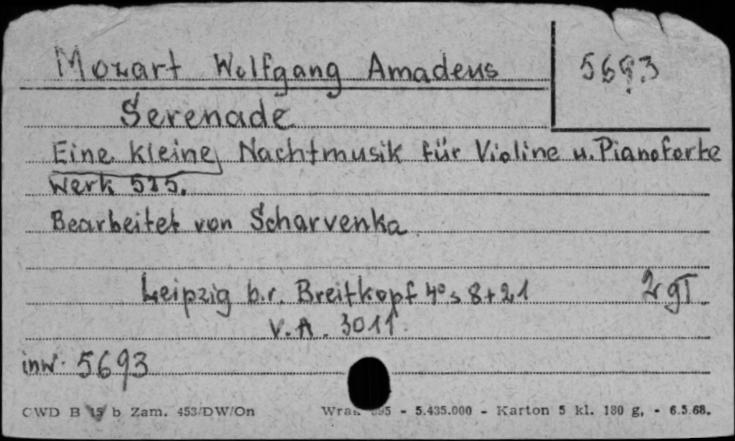 Mozart Wolfgang Amadeus 5693
Serenade
Eine kleine Nachtmusik für Violine u. Pianoforte
Werk 525.
Bearbeitet von Scharvenka
Leipzig b.r. Breitkopf 4º s 8+21 2 gł
V.A. 3011.
inw. 5693
CWD B 15 b Zam. 453/DW/On - 5.435.000 - Karton 5 kl. 180 g. - 6.5.68.